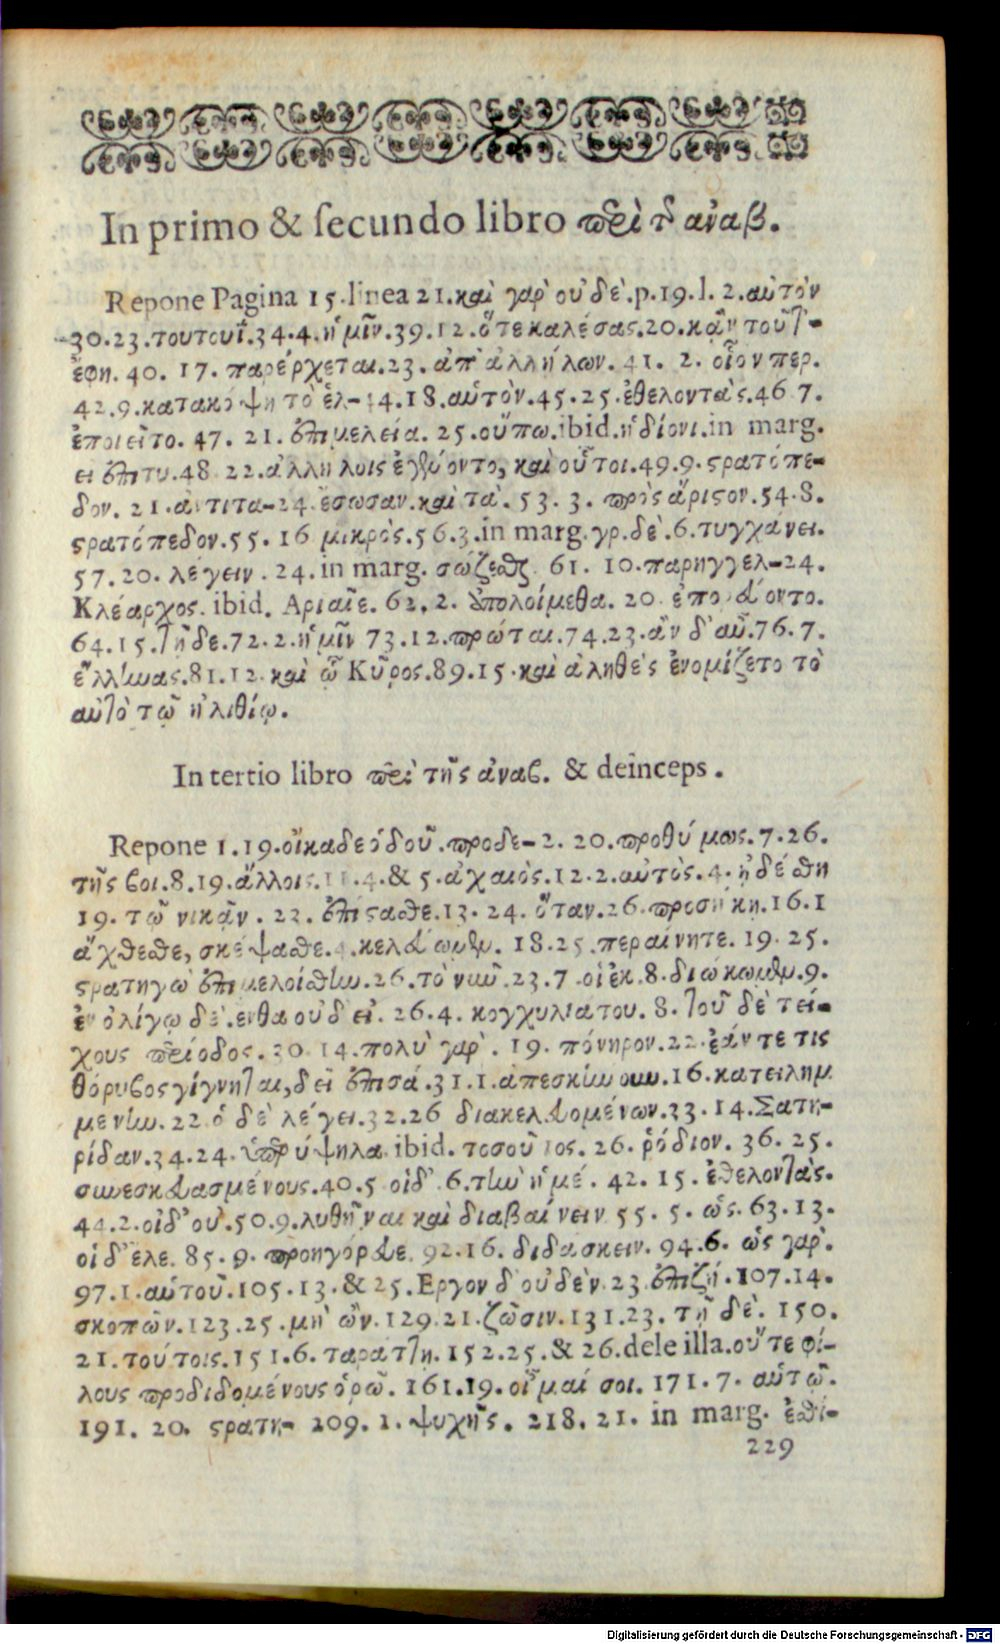 In primo & ſecundo libro περὶ τ̃ αναβ.
Repone Pagina 15. linea 21. καὶ γαρ' ουδε'. p. 19. l. 2. αὑτόν
30. 23. τουτουΐ. 34. 4. ἡμῖν. 39. 12. ὅτε καλέσας. 20. κᾂν τουτ'-
ἐφη. 40. 17. παρέρχεται. 23. ἀπ' ἀλλήλων. 41. 2. οἷον περ.
42. 9. κατακόψη τὸ ἑλ- 44. 18. αὑτὸν. 45. 25. ἐθελοντὰς. 46 7.
ἐποιεῖτο. 47. 21. ἐπιμελεία. 25. οὔπω. ibid. ἡδίονι. in marg.
ει ἐπιτυ. 48 22. ἀλλήλοις ἐγένοντο, καὶ οὗτοι. 49. 9. στρατόπε-
δον. 21. ἀντιτα- 24. ἔσωσαν. καὶ τὰ. 53. 3. πρὸς ἄριστον. 54. 8.
στρατόπεδον. 55. 16 μικρὸς. 56. 3. in marg. γρ. δὲ. 6. τυγχάνει.
57. 20. λέγειν. 24. in marg. σώζεσθε 61. 10. παρηγγελ- 24.
Κλέαρχος. ibid. Αριαῖε. 62. 2. ἀπολοίμεθα. 20. ἐπορεύοντο.
64. 15. τῇδε. 72. 2. ἡμῖν 73. 12. πρώται. 74. 23. ἂν δ' αὖ. 76. 7.
ἕλληνας. 81. 12. καὶ ὦ Κῦρος. 89. 15. καὶ ἀληθὲς ἐνομίζετο τὸ
αὐτὸ τῷ ἠλιθίῳ.
In tertio libro περὶ τῆς ἀναβ. & deinceps.
Repone 1. 19. οἴκαδε ὁδοῦ. προδε- 2. 20. προθύμως. 7. 26.
τῆς βοι. 8. 19. ἄλλοις. 11. 4. & 5. ἀχαιὸς. 12. 2. αὐτὸς. 4. ἠδέσθη
19. τῷ νικᾷν. 22. ἐπίστασθε. 13. 24. ὅταν. 26. προσήκη. 16. 1
ἄχθεσθε, σκέψασθε. 4. κελεύωμεν. 18. 25. περαίνητε. 19. 25.
στρατηγὼ ἐπιμελοίσθην. 26. τὸ νῦν. 23. 7. οἱ ἐκ. 8. διώκωμεν. 9.
ἐν ὀλίγῳ δὲ. ενθα ουδ εἰ. 26. 4. κογχυλιάτου. 8. τοῦ δὲ τεί-
χους περίοδος. 30 14. πολὺ γαρ'. 19. πόνηρον. 22. ἐάν τε τις
θόρυβος γίγνηται, δεῖ ἐπισά. 31. 1. ἀπεσκήνουν. 16. κατειλημ
μενην. 22 ὁ δὲ λέγει. 32. 26 διακελευομένων. 33. 14. Σατη-
ρίδαν. 34. 24. ὑπερύψηλα. ibid. τοσοῦτος. 26. ῥόδιον. 36. 25.
συνεσκευασμένους. 40. 5 οἱδ'. 6. τὴν ἡμέ. 42. 15. ἐθελοντὰς.
44. 2. οἱδ' οὐ. 50. 9. λυθῆναι καὶ διαβαίνειν 55. 5. ὡς. 63. 13.
οἱ δ' ἔλε. 85. 9. προηγόρευε. 92. 16. διδάσκειν. 94. 6. ὡς γαρ'.
97. 1. αὑτοῦ. 105. 13. & 25. Εργον δ' οὐδὲν. 23. ἐπιζή. 107. 14.
σκοπῶν. 123. 25. μὴ ὢν. 129. 21. ζῶσιν. 131. 23. τῇ δὲ. 150.
21. τούτοις. 151. 6. ταράττη. 152. 25. & 26. dele illa. οὔτε φί-
λους προδιδομένους ὁρῶ. 161. 19. οἶμαί σοι. 171. 7. αὑτῷ.
191. 20. στρατη- 209. 1. ψυχῆς. 218. 21. in marg. ἐπί-
229
Digitalisierung gefördert durch die Deutsche Forschungsgemeinschaft - DFG